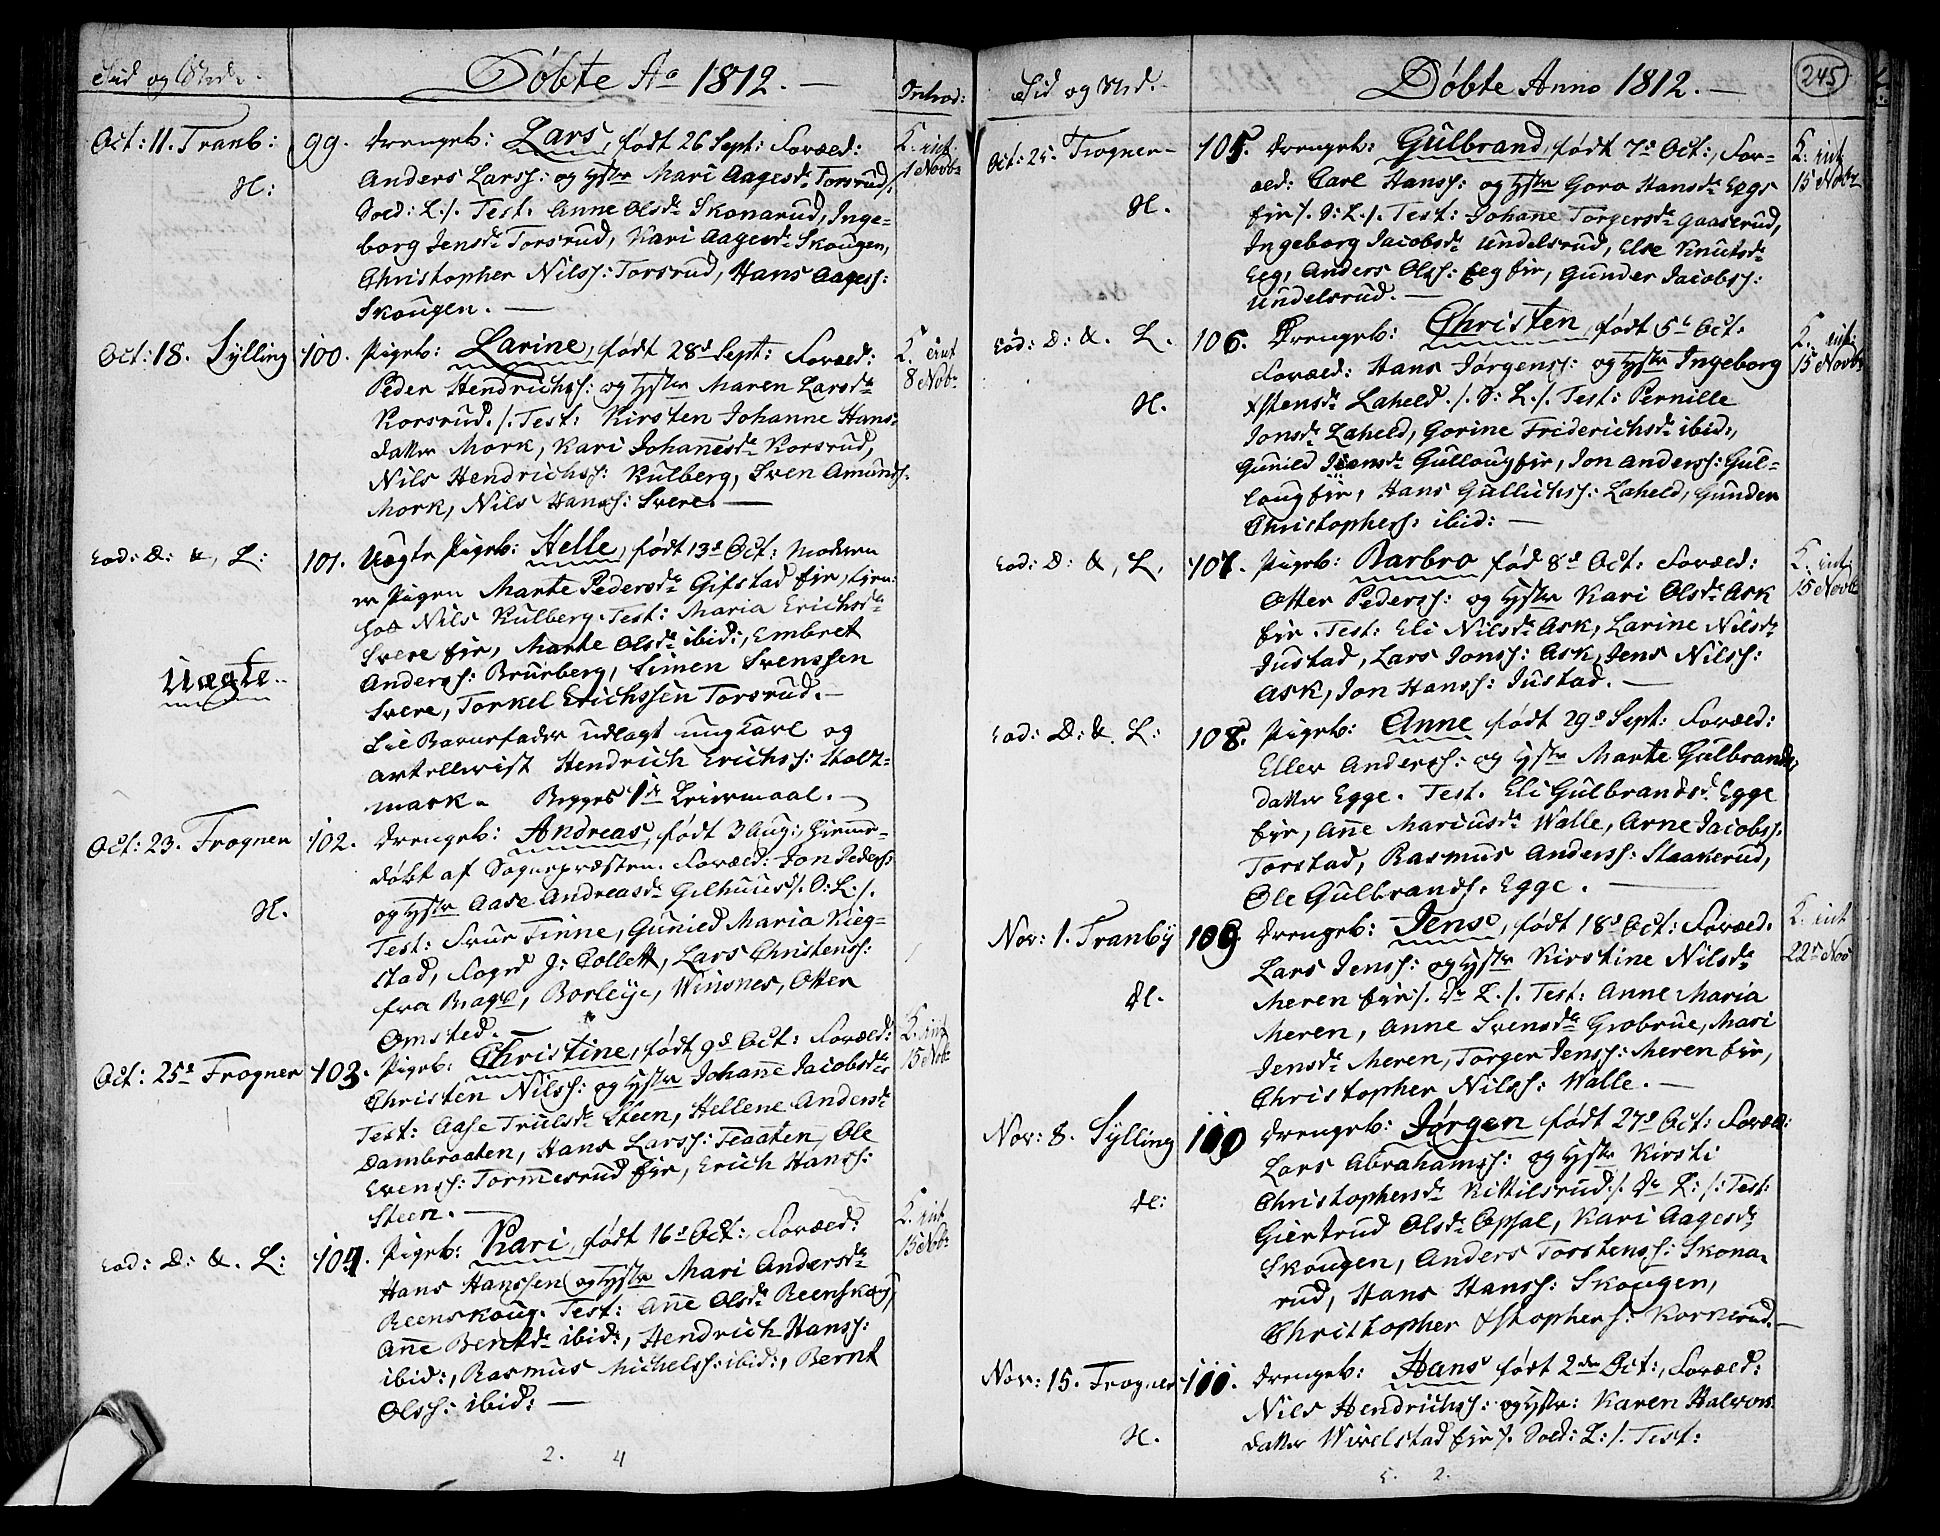 Tid og Sted. Døbte Ao 1812. — Introd:
Oct: 11. Tranb: 99. Drengeb: Lars, født 26 Sept: Foræld: K. int.
Anders Larss: og Hstr Mari Aagesdr Torsrud/: 1 Novbr
N: Sold: L./. Test. Anne Olsdr Skonarud, Inge-
borg Jensdr Torsrud, Kari Aagesdr Skougen,
Christopher Nilss: Torsrud, Hans Aagess:
Skougen. —
Oct: 18. Sylling 100. Pigeb: Larine, født 28d Sept: Foræld: K. int
Peder Hendrichss: og Hstr Maren Larsdr 8 Nobr
Korsrud./. Test: Kirsten Johanne Hans-
datter Mork, Kari Johanesdr Korsrud,
Nils Hendrichss: Kulberg, Sven Amunds.
Mork, Nils Hanss: Svere. —
Eod: D: &, L: 101. Uægte Pigeb: Helle, født 13d Oct: Moderen
er Pigen Marte Pedersdr Gifstad eje, tjen:
hos Nils Kulberg. Test: Maria Erichsdr
Svere eje, Marte Olsdr ibid:, Embret
Uægte.. Anderss: Brurberg, Simen Svenssen
Svere, Torkel Erichssen Torsrud. —
Til Barnefader udlagt ungkarl og
artellerist Hendrich Erichss: Holt-
mark. Begges 1te Leiermaal. —
Oct: 23. Frogner 102. Drengeb: Andreas, født 3 Aug:, hieme-
døbt af Sognepræsten. Foræld: Jon Peders:
N. og Hstr Aase Andreasdr Gilhuus/. S: L./.
Test: Frue Finne, Gunild Maria Kieg-
stad, Foged J: Collett, Lars Christenss:
fra Brage, Borleye, Winsnes, Otter
Omsted.
Oct: 25d Frogner 103. Pigeb: Christine, født 9d Oct: Foræld: K. int
Christen Nilss: og Hstr Johane Jacobsdr 15 Nobr
Test: Aase Trulsdr Steen, Hellene Andersdr
Dambraaten, Hans Larss: Teaaten, Ole
Evenss: Tormesrud eje, Erich Hanss:
Steen. —
Eod: D: &. L: 104. Pigeb: Kari, født 16d Oct:, Foræld: K. int
Hans Hanssen og Hstr Mari Andersdr 15 Nobr
Reenskoug. Test: Ane Olsdr Reenskoug,
Ane Bentdr ibid:, Hendrich Hanss:
ibid:, Rasmus Michelss: ibid:, Bernt
Olss: ibid: —
2. 4
Tid og Sted. Døbte Anno 1812. — 245
Oct: 25. Frogner— 105. Drengeb: Gulbrand, født 7d Oct:, For- K. int
æld: Carl Hanss: og Hstr Goro Hansdr Eegs 15 Nobr
N. eje/. S: L./. Test: Johane Torgersdr Gaaserud,
Ingeborg Jacobsdr Undelsrud, Else Knutsdr
Eeg, Anders Olss: Eeg eje, Gunder Jacobss:
Undelsrud. —
Eod: D: &. L. 106. Drengeb: Christen, født 5t Oct: K. int:
Foræld: Hans Jørgenss: og Hstr Ingeborg 15 Novbr
N. Xstensdr Laheld./. S: L./. Test: Pernille
Jonsdr Laheld, Gorine Friderichsdr ibid:,
Gunild Jensdr Gulloug eje, Jon Anderss: Gul-
loug eje, Hans Gullichss: Laheld, Gunder
Christopherss: ibid: —
Eod: D: &, L. 107. Pigeb: Barbro fød 8d Oct: Foræld: K. int
Otter Pederss: og Hstr Kari Olsdr Ask 15 Novbr
eje. Test: Eli Nilsdr Ask, Larine Nilsdr
Justad, Lars Jonss: Ask, Jens Nilss:
Ask, Jon Hanss: Justad. —
Eod: D: &. L: 108. Pigeb: Anne født 29d Sept: Foræld:
Eller Anderss: og Hstr Marte Gulbrands
datter Egge. Test. Eli Gulbrandsdr Egge
eje, Ane Mariusdr Walle, Arne Jacobss.
Torstad, Rasmus Anderss: Staakerud,
Ole Gulbrands. Egge. —
Nov: 1. Tranby 109. Drengeb: Jens, født 18d Oct: Foræld. K. int
Lars Jenss: og Hstr Kirstine Nilsdr 22de Nov
N. Meren eje/. Dr L./. Test: Anne Maria
Meren, Anne Svensdr Grobrue, Mari
Jensdr Meren, Torger Jenss: Meren eje,
Christopher Nilss: Walle. —
Nov: 8. Sylling 110 Drengeb: Jørgen født 27d Oct: Foræld:
Lars Abrahamss: og Hstr Kirsti
N: Christophersdr Kittilsrud:/. Dr L:/: Test:
Giertrud Olsdr Opsal, Kari Aagesdr
Skougen, Anders Torstenss: Skona-
rud, Hans Hanss: Skougen,
Christopher Xstophers: Kornerud. —
Nov: 15. Frogner 111. Drengeb: Hans født 2den Oct:, Foræld:
Nils Hendrichss: og Hstr: Karen Halvors
N. datter Wivelstad eje/. Sold: L:/. Test:
5. 2.